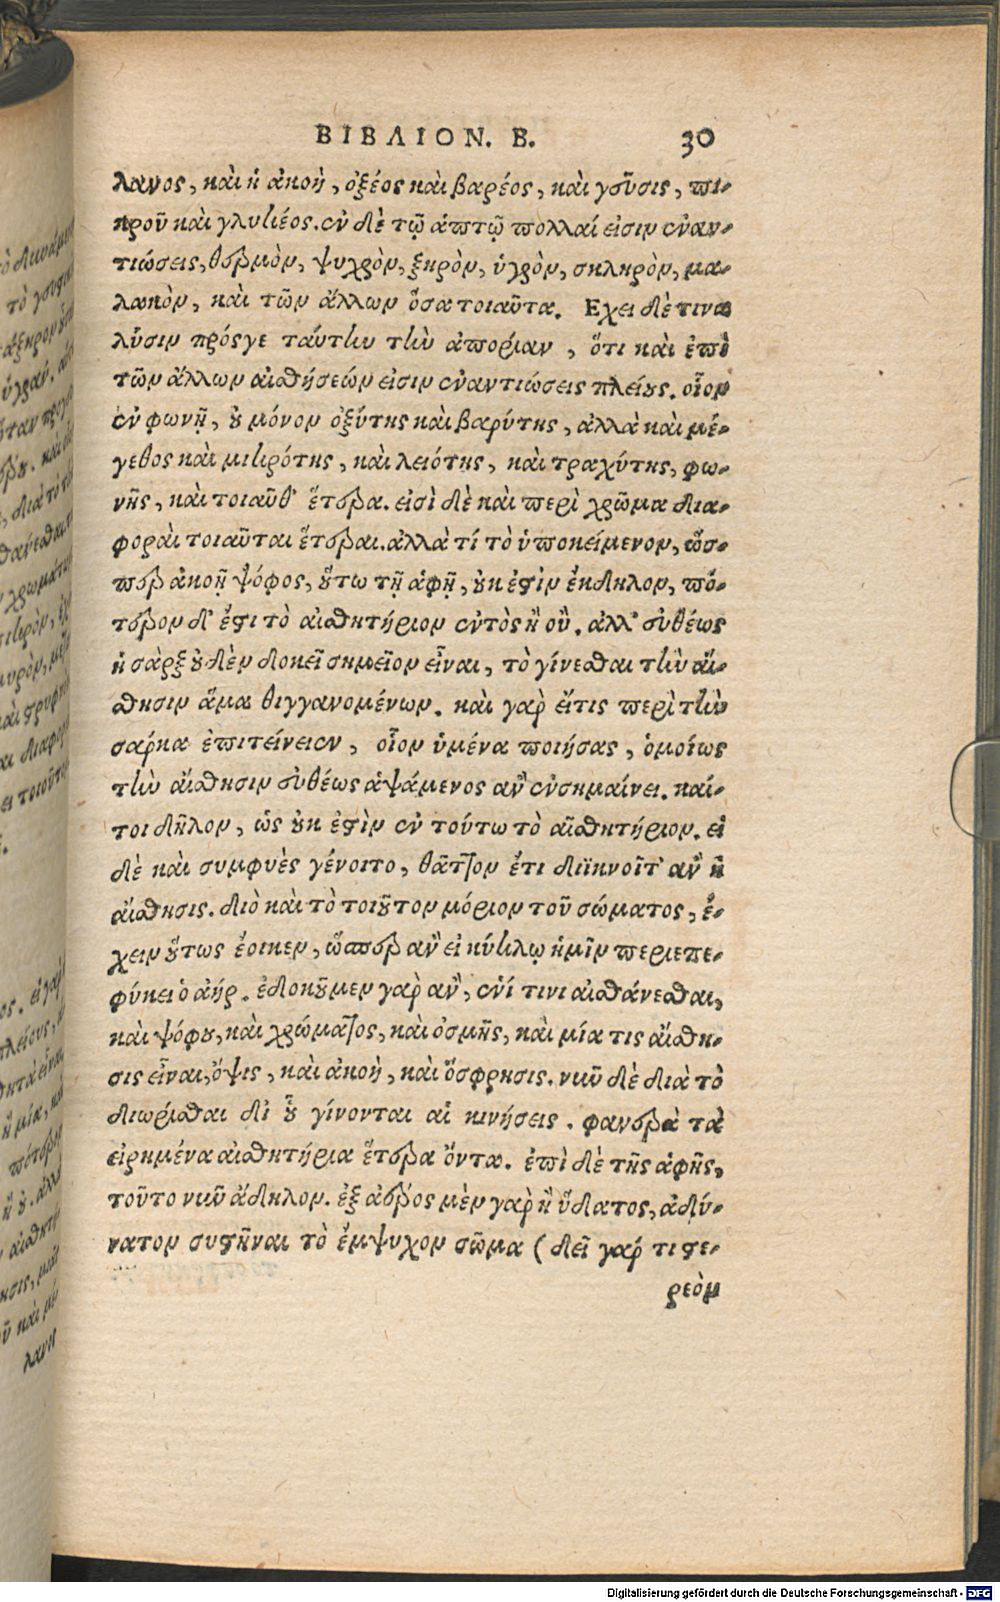 ΒΙΒΛΙΟΝ. Β. 30
λανος, καὶ ἡ ἀκοὴ, ὀξέος καὶ βαρέος, καὶ γεῦσις, πι-
κροῦ καὶ γλυκέος. ἐν δὲ τῷ ἁπτῷ πολλαί εἰσιν ἐναν-
τιώσεις, θερμὸν, ψυχρὸν, ξηρὸν, ὑγρὸν, σκληρὸν, μα-
λακὸν, καὶ τῶν ἄλλων ὅσα τοιαῦτα. Εχει δὲ τινα
λύσιν πρόςγε ταύτην τὴν ἀπορίαν, ὅτι καὶ ἐπὶ
τῶν ἄλλων αἰσθήσεών εἰσιν ἐναντιώσεις πλείους. οἷον
ἐν φωνῇ, οὐ μόνον ὀξύτης καὶ βαρύτης, ἀλλὰ καὶ μέ-
γεθος καὶ μικρότης, καὶ λειότης, καὶ τραχύτης, φω-
νῆς, καὶ τοιαῦθ' ἕτερα. εἰσὶ δὲ καὶ περὶ χρῶμα δια-
φοραὶ τοιαῦται ἕτεραι. ἀλλὰ τί τὸ ὑποκείμενον, ὥσ-
περ ἀκοῇ ψόφος, οὕτω τῇ ἁφῇ, οὐκ ἐστὶν ἔκδηλον, πό-
τερον δ' ἔστι τὸ αἰσθητήριον ἐντὸς ἢ οὔ. ἀλλ' εὐθέως
ἡ σὰρξ οὐδὲν δοκεῖ σημεῖον εἶναι, τὸ γίνεσθαι τὴν αἴ-
σθησιν ἅμα θιγγανομένων. καὶ γὰρ εἴτις περὶ τὴν
σάρκα ἐπιτείνειεν, οἷον ὑμένα ποιήσας, ὁμοίως
τὴν αἴσθησιν εὐθέως ἁψάμενος ἂν ἐνσημαίνει. καί-
τοι δῆλον, ὡς οὐκ ἐστὶν ἐν τούτω τὸ αἰσθητήριον. εἰ
δὲ καὶ συμφυὲς γένοιτο, θᾶττον ἔτι διϊκνοῖτ' ἂν ἡ
αἴσθησις. διὸ καὶ τὸ τοιοῦτον μόριον τοῦ σώματος, ἔ-
χειν οὕτως ἔοικεν, ὥσπερ ἂν εἰ κύκλῳ ἡμῖν περιεπε-
φύκει ὁ ἀήρ. ἐδοκοῦμεν γὰρ ἂν, ἑνί τινι αἰσθάνεσθαι,
καὶ ψόφου, καὶ χρώματος, καὶ ὀσμῆς, καὶ μία τις αἴσθη-
σις εἶναι, ὄψις, καὶ ἀκοὴ, καὶ ὄσφρησις. νῦν δὲ διὰ τὸ
διωρίσθαι δι' οὗ γίνονται αἱ κινήσεις. φανερὰ τὰ
εἰρημένα αἰσθητήρια ἕτερα ὄντα. ἐπὶ δὲ τῆς ἁφῆς,
τοῦτο νῦν ἄδηλον. ἐξ ἀέρος μὲν γὰρ ἢ ὕδατος, ἀδύ-
νατον συστῆναι τὸ ἔμψυχον σῶμα (δεῖ γάρ τι στε-
ρεὸν
Digitalisierung gefördert durch die Deutsche Forschungsgemeinschaft - DFG